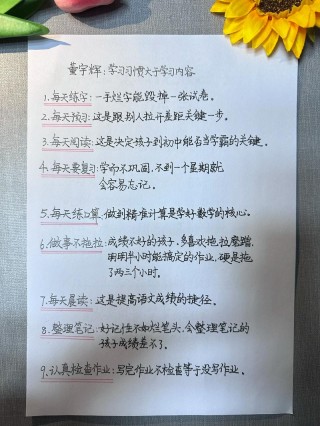 董宇辉:学习习惯大于学习内容
1.每天练字:一手烂字能毁掉一张试卷。
2.每天预习:这是跟别人拉开差距关键一步。
3.每天阅读:这是决定孩子到初中能否当学霸的关键。
4.每天要复习:学而不巩固,不到一个星期就
会容易忘记。
5.每天练口算,做到精准计算是学好数学的核心。
6.做事不拖拉:成绩不好的孩子,多喜欢拖拉磨蹭,
明明半小时能搞定的作业,硬是拖
了两三个小时。
7.每天晨读:这是提高语文成绩的捷径。
8.整理笔记:好记性不如烂笔头,会整理笔记的
孩子成绩差不了。
9.认真检查作业:写完作业不检查等于没写作业。